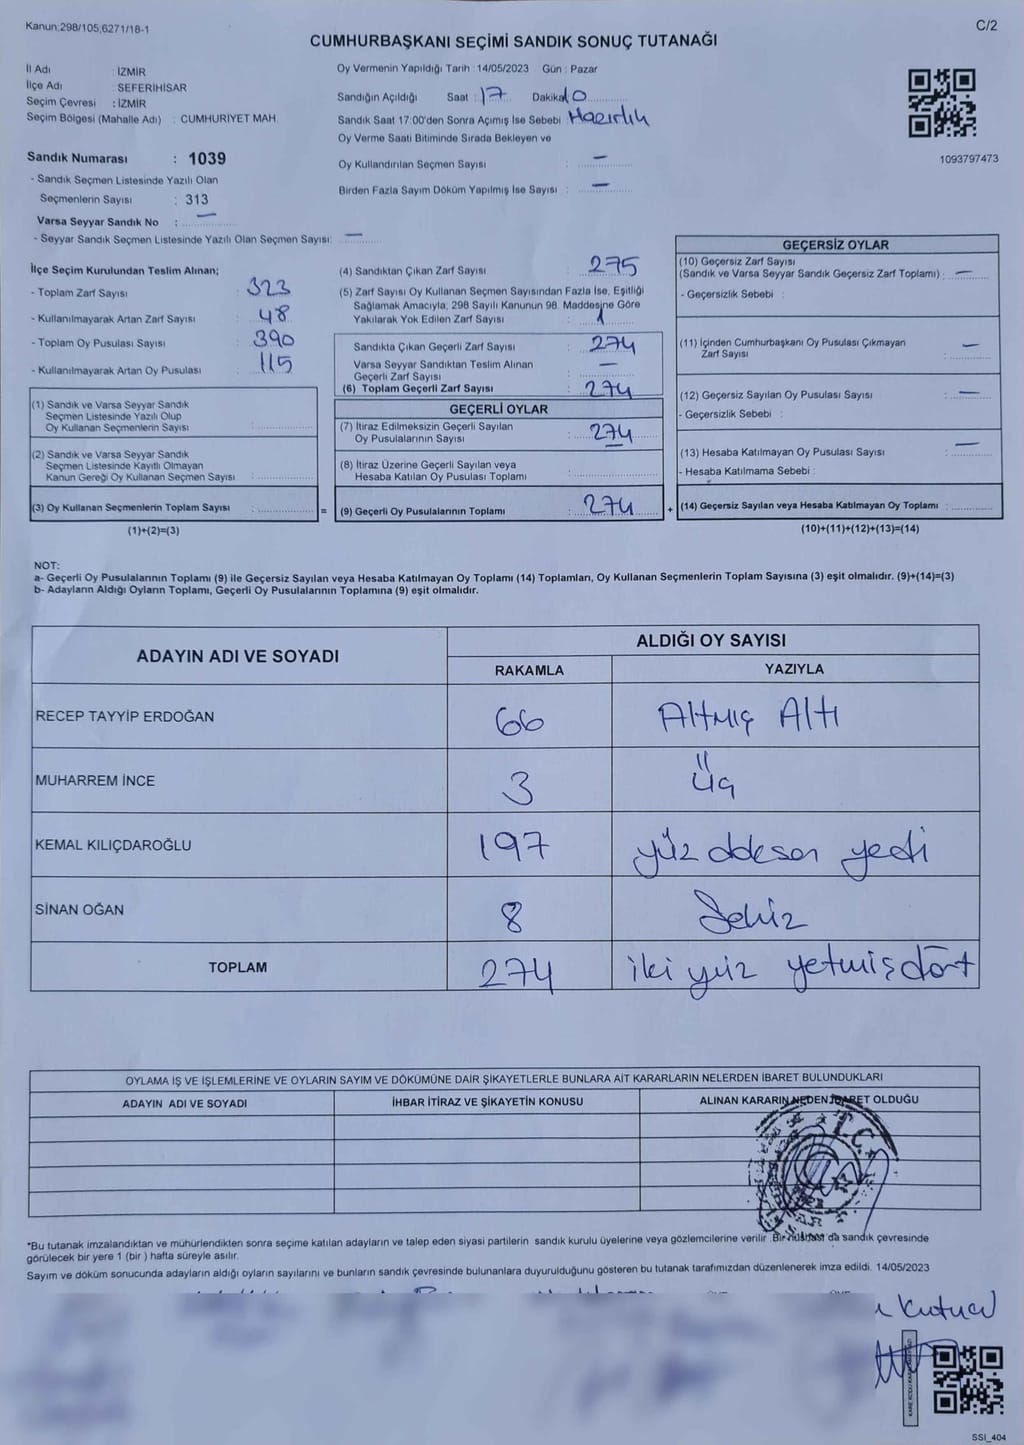 Kanun;298/105,6271/18-1
C/2
CUMHURBAŞKANI SEÇİMİ SANDIK SONUÇ TUTANAĞI
İl Adı : İZMİR
İlçe Adı : SEFERİHİSAR
Seçim Çevresi : İZMİR
Seçim Bölgesi (Mahalle Adı) : CUMHURİYET MAH.
Oy Vermenin Yapıldığı Tarih : 14/05/2023 Gün : Pazar
Sandığın Açıldığı Saat : 17 Dakika 10
Sandık Saat 17:00'den Sonra Açımış İse Sebebi : Hazırlık
Oy Verme Saati Bitiminde Sırada Bekleyen ve
Oy Kullandırılan Seçmen Sayısı : —
Birden Fazla Sayım Döküm Yapılmış İse Sayısı : —
1093797473
Sandık Numarası : 1039
- Sandık Seçmen Listesinde Yazılı Olan
Seçmenlerin Sayısı : 313
Varsa Seyyar Sandık No : —
- Seyyar Sandık Seçmen Listesinde Yazılı Olan Seçmen Sayısı: —
İlçe Seçim Kurulundan Teslim Alınan;
- Toplam Zarf Sayısı : 323
- Kullanılmayarak Artan Zarf Sayısı : 48
- Toplam Oy Pusulası Sayısı : 390
- Kullanılmayarak Artan Oy Pusulası : 115
(1) Sandık ve Varsa Seyyar Sandık
Seçmen Listesinde Yazılı Olup
Oy Kullanan Seçmenlerin Sayısı :
(2) Sandık ve Varsa Seyyar Sandık
Seçmen Listesinde Kayıtlı Olmayan
Kanun Gereği Oy Kullanan Seçmen Sayısı :
(3) Oy Kullanan Seçmenlerin Toplam Sayısı : =
(1)+(2)=(3)
(4) Sandıktan Çıkan Zarf Sayısı : 275
(5) Zarf Sayısı Oy Kullanan Seçmen Sayısından Fazla İse, Eşitliği
Sağlamak Amacıyla, 298 Sayılı Kanunun 98. Maddesine Göre
Yakılarak Yok Edilen Zarf Sayısı : 1
Sandıkta Çıkan Geçerli Zarf Sayısı : 274
Varsa Seyyar Sandıktan Teslim Alınan
Geçerli Zarf Sayısı : —
(6) Toplam Geçerli Zarf Sayısı : 274
GEÇERLİ OYLAR
(7) İtiraz Edilmeksizin Geçerli Sayılan
Oy Pusulalarının Sayısı : 274
(8) İtiraz Üzerine Geçerli Sayılan veya
Hesaba Katılan Oy Pusulası Toplamı :
(9) Geçerli Oy Pusulalarının Toplamı : 274 +
GEÇERSİZ OYLAR
(10) Geçersiz Zarf Sayısı
(Sandık ve Varsa Seyyar Sandık Geçersiz Zarf Toplamı) : —
- Geçersizlik Sebebi :
(11) İçinden Cumhurbaşkanı Oy Pusulası Çıkmayan
Zarf Sayısı : —
(12) Geçersiz Sayılan Oy Pusulası Sayısı : —
- Geçersizlik Sebebi :
(13) Hesaba Katılmayan Oy Pusulası Sayısı : —
- Hesaba Katılmama Sebebi :
(14) Geçersiz Sayılan veya Hesaba Katılmayan Oy Toplamı :
(10)+(11)+(12)+(13)=(14)
NOT:
a- Geçerli Oy Pusulalarının Toplamı (9) ile Geçersiz Sayılan veya Hesaba Katılmayan Oy Toplamı (14) Toplamları, Oy Kullanan Seçmenlerin Toplam Sayısına (3) eşit olmalıdır. (9)+(14)=(3)
b- Adayların Aldığı Oyların Toplamı, Geçerli Oy Pusulalarının Toplamına (9) eşit olmalıdır.
ADAYIN ADI VE SOYADI
ALDIĞI OY SAYISI
RAKAMLA YAZIYLA
RECEP TAYYİP ERDOĞAN 66 Altmış Altı
MUHARREM İNCE 3 Üç
KEMAL KILIÇDAROĞLU 197 yüz doksan yedi
SİNAN OĞAN 8 Sekiz
TOPLAM 274 iki yüz yetmiş dört
OYLAMA İŞ VE İŞLEMLERİNE VE OYLARIN SAYIM VE DÖKÜMÜNE DAİR ŞİKAYETLERLE BUNLARA AİT KARARLARIN NELERDEN İBARET BULUNDUKLARI
ADAYIN ADI VE SOYADI İHBAR İTİRAZ VE ŞİKAYETİN KONUSU ALINAN KARARIN NEDEN İBARET OLDUĞU
T.C.
*Bu tutanak imzalandıktan ve mühürlendikten sonra seçime katılan adayların ve talep eden siyasi partilerin sandık kurulu üyelerine veya gözlemcilerine verilir. Bir nüshası da sandık çevresinde
görülecek bir yere 1 (bir ) hafta süreyle asılır.
Sayım ve döküm sonucunda adayların aldığı oyların sayılarını ve bunların sandık çevresinde bulunanlara duyurulduğunu gösteren bu tutanak tarafımızdan düzenlenerek imza edildi. 14/05/2023
Kutucu
SSI_404